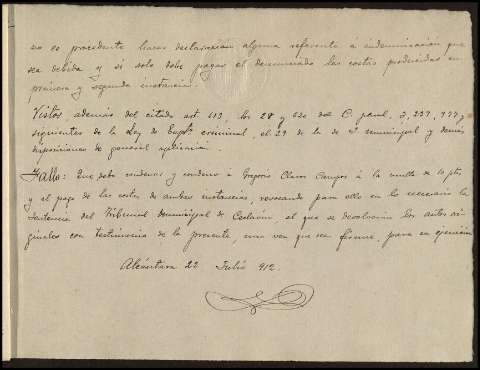 no es procedente hacer declaración alguna referente á indemnización que
sea debida y si solo debe pagar el denunciado las costas producidas en
primera y segunda instancia.
Vistos, además del citado art 613, los 28 y 620 del C. penal,
siguientes de la Ley de Enjto criminal, el 29 de la de Jª municipal y demás
disposiciones de general aplicación.
Fallo: Que debo condenar y condeno á Gregorio Claros Campos á la multa de 10 pts,
y al pago de las costas de ambas instancias, revocando para ello en lo necesario la
Sentencia del Tribunal municipal de Ceclavin, al que se devolverán los autos ori-
ginales con testimonio de la presente, una vez que sea firme, para su ejecución
Alcántara 22 Julio 912.